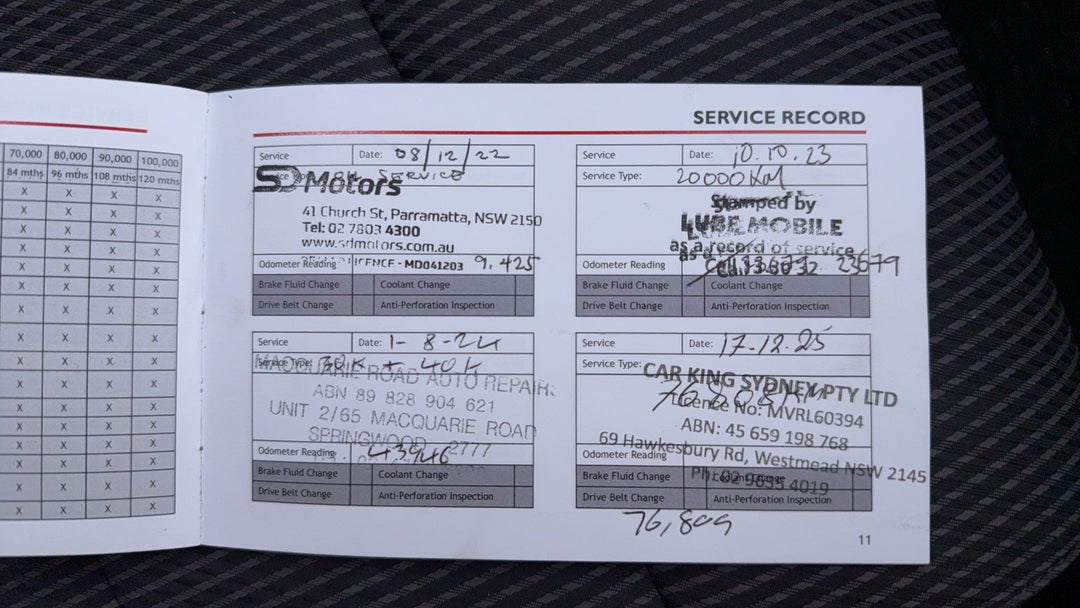 70,000 80,000 90,000 100,000
84 mths 96 mths 108 mths 120 mths
X X X X
X X X X
X X X X
X X X X
X X X X
X X X X
X X X X
X X X X
X X X X
X X X X
X X X X
X X X X
X X X X
X X X X
SERVICE RECORD
Service Date: 08/12/22
SERVICE
SD Motors
41 Church St, Parramatta, NSW 2150
Tel: 02 7803 4300
www.sdmotors.com.au
Odometer Reading LICENCE - MD041203 9,425
Brake Fluid Change Coolant Change
Drive Belt Change Anti-Perforation Inspection
Service Date: 10.10.23
Service Type: 20000 KM
Stamped by
LUBE MOBILE
as a record of service
Odometer Reading Call 13 30 32 23679
Brake Fluid Change Coolant Change
Drive Belt Change Anti-Perforation Inspection
Service Date: 1-8-24
Service Type: 30K + 40K
MACQUARIE ROAD AUTO REPAIRS
ABN 89 828 904 621
UNIT 2/65 MACQUARIE ROAD
SPRINGWOOD 2777
Odometer Reading 43946
Brake Fluid Change Coolant Change
Drive Belt Change Anti-Perforation Inspection
Service Date: 17.12.25
Service Type:
CAR KING SYDNEY PTY LTD
76,808KM
Licence No: MVRL60394
ABN: 45 659 198 768
69 Hawkesbury Rd, Westmead NSW 2145
Odometer Reading
Ph: 02 9635 4019
Brake Fluid Change Coolant Change
Drive Belt Change Anti-Perforation Inspection
76,809
11